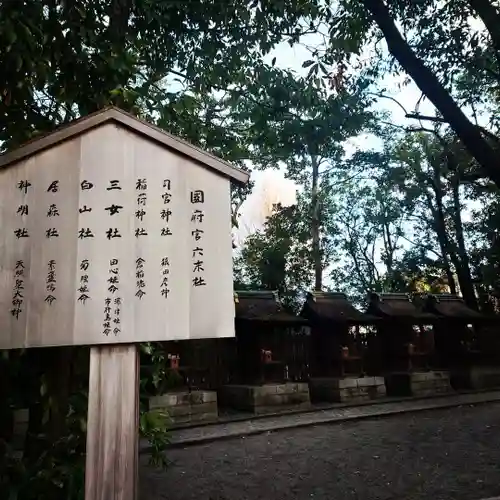 國府宮六末社
司宮神社 猿田彦神
稲荷神社 倉稲魂命
三女社 田心姫命
湍津姫命
市杵姫命
白山社 菊理姫命
居森社 素盞嗚命
神明社 天照皇大御神